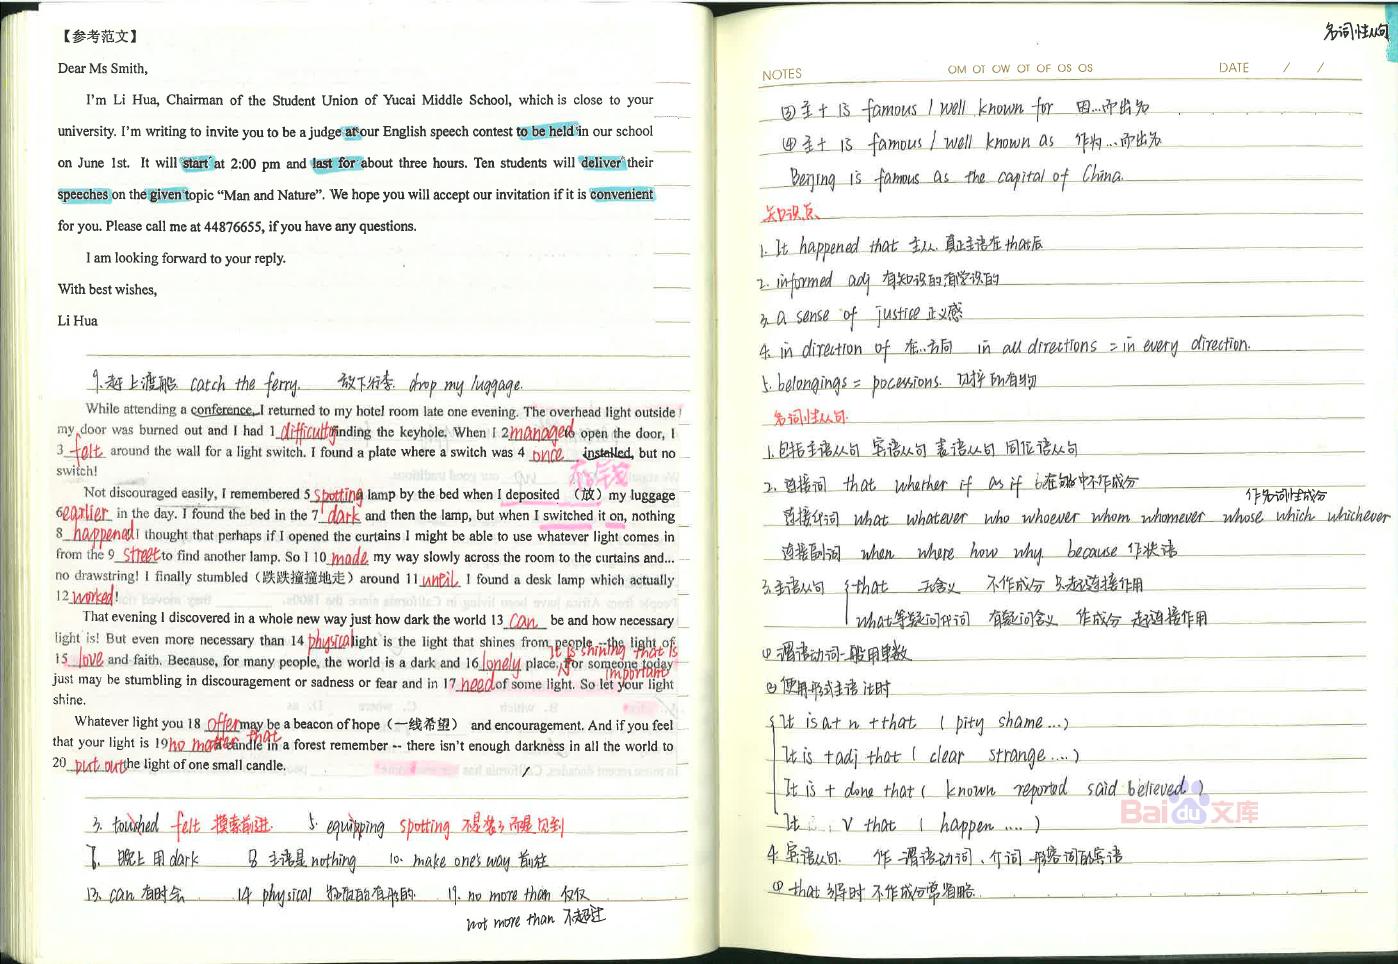 【参考范文】
Dear Ms Smith,
I'm Li Hua, Chairman of the Student Union of Yucai Middle School, which is close to your
university. I'm writing to invite you to be a judge at our English speech contest to be held in our school
on June 1st. It will start at 2:00 pm and last for about three hours. Ten students will deliver their
speeches on the given topic “Man and Nature”. We hope you will accept our invitation if it is convenient
for you. Please call me at 44876655, if you have any questions.
I am looking forward to your reply.
With best wishes,
Li Hua
9. 赶上渡船 catch the ferry. 放下行李. drop my luggage.
While attending a conference, I returned to my hotel room late one evening. The overhead light outside
my door was burned out and I had 1 difficulty finding the keyhole. When I 2 managed to open the door, I
3 felt around the wall for a light switch. I found a plate where a switch was 4 once installed, but no
switch!
Not discouraged easily, I remembered 5 spotting lamp by the bed when I deposited （放）my luggage
6 earlier in the day. I found the bed in the 7 dark and then the lamp, but when I switched it on, nothing
8 happened I thought that perhaps if I opened the curtains I might be able to use whatever light comes in
from the 9 street to find another lamp. So I 10 made my way slowly across the room to the curtains and...
no drawstring! I finally stumbled (跌跌撞撞地走) around 11 until I found a desk lamp which actually
12 worked!
That evening I discovered in a whole new way just how dark the world 13 can be and how necessary
light is! But even more necessary than 14 physical light is the light that shines from people --the light of
It is shining that is important
15 love and faith. Because, for many people, the world is a dark and 16 lonely place. For someone today
just may be stumbling in discouragement or sadness or fear and in 17 need of some light. So let your light
shine.
Whatever light you 18 offer may be a beacon of hope（一线希望） and encouragement. And if you feel
that your light is 19 no more than a candle in a forest remember -- there isn't enough darkness in all the world to
20 put out the light of one small candle.
3. touched felt 摸索前进. 5. equipping spotting 不是装了而是见到
7. 晚上用dark 8 主语是nothing 10. make one's way 前往
13. can 有时会 14 physical 物质的有形的. 19. no more than 仅仅
not more than 不超过
名词性从句
NOTES OM OT OW OT OF OS OS DATE / /
③主+ is famous / well known for 因...而出名
④主+ is famous / well known as 作为...而出名
Beijing is famous as the capital of China.
知识点.
1. It happened that 主从. 真正主语在that后
2. informed adj 有知识的有学识的
3. a sense of justice 正义感
4. in direction of 在..方向 in all directions = in every direction.
5. belongings = pocessions. 所有物
名词性从句.
1. 包括主语从句 宾语从句 表语从句 同位语从句
2. 连接词 that whether if as if 在句中不作成分
作名词性成分
连接代词 what whatever who whoever whom whomever whose which whichever
连接副词 when where how why because 作状语
3. 主语从句 { that 无含义 不作成分 只起连接作用
what等疑问代词 有疑问含义 作成分 起连接作用
① 谓语动词一般用单数
② 使用形式主语 it时
It is a+ n +that ( pity shame ...)
It is +adj that ( clear strange ....)
It is + done that ( known reported said believed )
It V that ( happen .... )
4. 宾语从句. 作 谓语动词、介词 形容词的宾语
① that 引导时 不作成分常省略
Bai du 文库